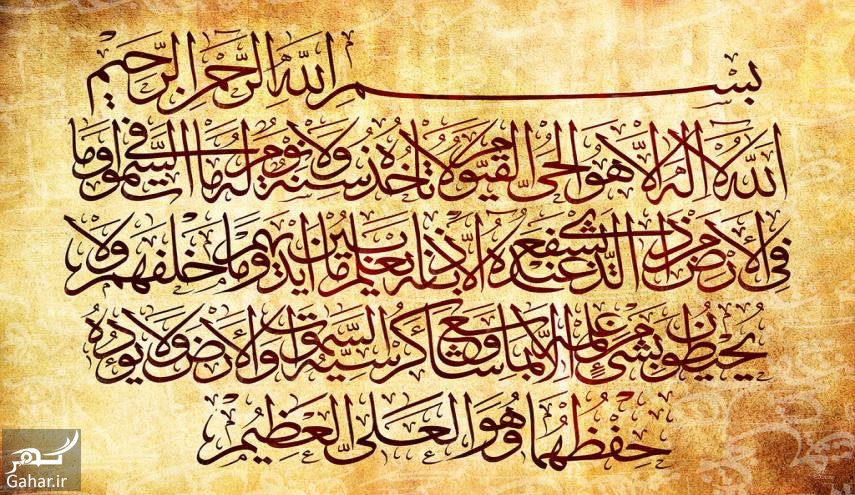 بِسْمِ اللَّهِ الرَّحْمَنِ الرَّحِيمِ
اللَّهُ لَا إِلَهَ إِلَّا هُوَ الْحَيُّ الْقَيُّومُ لَا تَأْخُذُهُ سِنَةٌ وَلَا نَوْمٌ لَهُ مَا فِي السَّمَوَاتِ وَمَا
فِي الْأَرْضِ مَنْ ذَا الَّذِي يَشْفَعُ عِنْدَهُ إِلَّا بِإِذْنِهِ يَعْلَمُ مَا بَيْنَ أَيْدِيهِمْ وَمَا خَلْفَهُمْ وَلَا
يُحِيطُونَ بِشَيْءٍ مِنْ عِلْمِهِ إِلَّا بِمَا شَاءَ وَسِعَ كُرْسِيُّهُ السَّمَوَاتِ وَالْأَرْضَ وَلَا يَئُودُهُ
حِفْظُهُمَا وَهُوَ الْعَلِيُّ الْعَظِيمُ
گهر
Gahar.ir